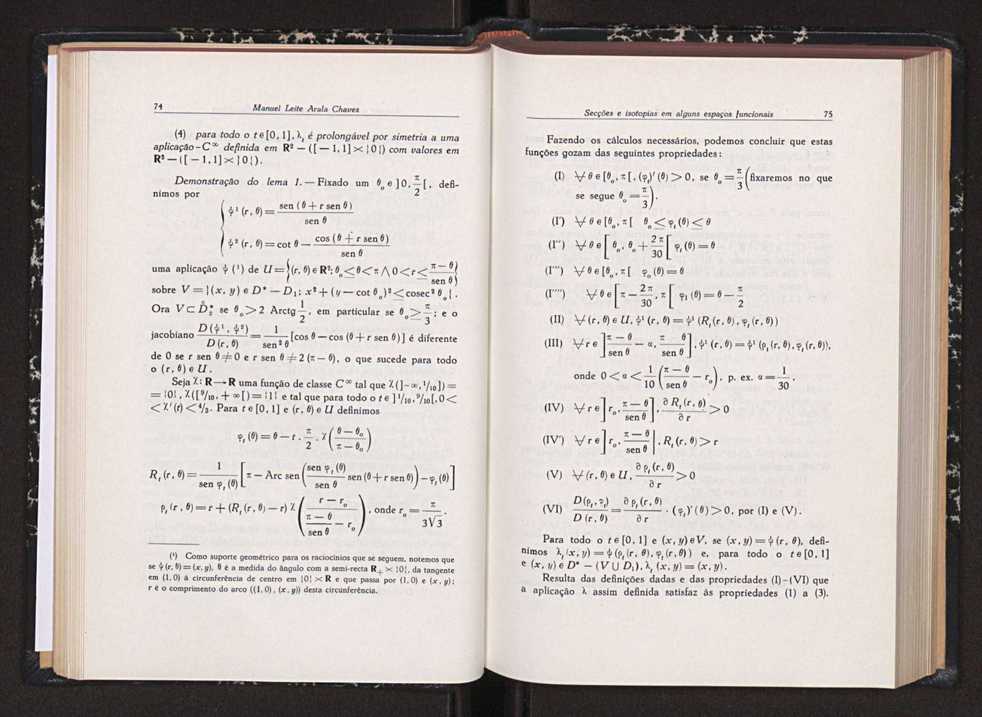 74 Manuel Leite Arala Chaves
(4) para todo o t ∈ [0, 1], λ_t é prolongável por simetria a uma
aplicação-C^∞ definida em R² — ([— 1, 1] × {0}) com valores em
R² — ([— 1, 1] × {0}).
Demonstração do lema 1. — Fixado um θ_o ∈ ]0, π/2[, defi-
nimos por
ψ¹ (r, θ) = sen (θ + r sen θ) / sen θ
ψ² (r, θ) = cot θ — cos (θ + r sen θ) / sen θ
uma aplicação ψ (¹) de U = {(r, θ) ∈ R²; θ_o ≤ θ < π ∧ 0 < r < (π — θ)/sen θ}
sobre V = {(x, y) ∈ D* — D₁; x² + (y — cot θ_o)² ≤ cosec² θ_o}.
se θ_o > 2 Arctg 1/2, em particular se θ_o ≥ π/3; e o
jacobiano D (ψ¹, ψ²) / D (r, θ) = 1/sen² θ [cos θ — cos (θ + r sen θ)] é diferente
de 0 se r sen θ ≠ 0 e r sen θ ≠ 2 (π — θ), o que sucede para todo
o (r, θ) ∈ U.
Seja χ: R → R uma função de classe C^∞ tal que χ(]— ∞, 1/10]) =
= {0}, χ([9/10, + ∞[) = {1} e tal que para todo o t ∈ ]1/10, 9/10[, 0 <
< χ' (t) < 4/3. Para t ∈ [0, 1] e (r, θ) ∈ U definimos
φ_t (θ) = θ — t . π/2 . χ ((θ — θ_o)/(π — θ_o))
R_t (r, θ) = 1/sen φ_t (θ) [π — Arc sen (sen φ_t (θ)/sen θ sen (θ + r sen θ)) — φ_t (θ)]
ρ_t (r, θ) = r + (R_t (r, θ) — r) χ ((r — r_o)/((π — θ)/sen θ — r_o)), onde r_o = π/(3√3).
(¹) Como suporte geométrico para os raciocínios que se seguem, notemos que
se ψ (r, θ) = (x, y), θ é a medida do ângulo com a semi-recta R₊ × {0}, da tangente
em (1, 0) à circunferência de centro em {0} × R e que passa por (1, 0) e (x, y);
r é o comprimento do arco ((1, 0), (x, y)) desta circunferência.
Secções e isotopias em alguns espaços funcionais 75
Fazendo os cálculos necessários, podemos concluir que estas
funções gozam das seguintes propriedades:
(I) ∀ θ ∈ [θ_o, π[, (φ_t)' (θ) > 0, se θ_o = π/3 (fixaremos no que
se segue θ_o = π/3).
(I') ∀ θ ∈ [θ_o, π[ θ_o ≤ φ_t (θ) ≤ θ
(I'') ∀ θ ∈ [θ_o, θ_o + 2π/30[ φ_t (θ) = θ
(I''') ∀ θ ∈ [θ_o, π[ φ_o (θ) = θ
(I'''') ∀ θ ∈ [π — 2π/30, π[ φ₁ (θ) = θ — π/2
(II) ∀ (r, θ) ∈ U, ψ¹ (r, θ) = ψ¹ (R_t (r, θ), φ_t (r, θ))
(III) ∀ r ∈ ](π — θ)/sen θ — α, (π — θ)/sen θ], ψ¹ (r, θ) = ψ¹ (ρ_t (r, θ), φ_t (r, θ)),
onde 0 < α < 1/10 ((π — θ)/sen θ — r_o), p. ex. α = 1/30.
(IV) ∀ r ∈ ]r_o, (π — θ)/sen θ], ∂ R_t (r, θ)/∂ r > 0
(IV') ∀ r ∈ ]r_o, (π — θ)/sen θ], R_t (r, θ) > r
(V) ∀ (r, θ) ∈ U, ∂ ρ_t (r, θ)/∂ r > 0
(VI) D (ρ_t, φ_t)/D (r, θ) = ∂ ρ_t (r, θ)/∂ r . (φ_t)' (θ) > 0, por (I) e (V).
Para todo o t ∈ [0, 1] e (x, y) ∈ V, se (x, y) = ψ (r, θ), defi-
nimos λ_t (x, y) = ψ (ρ_t (r, θ), φ_t (r, θ)) e, para todo o t ∈ [0, 1]
e (x, y) ∈ D* — (V ∪ D₁), λ_t (x, y) = (x, y).
Resulta das definições dadas e das propriedades (I)-(VI) que
a aplicação λ assim definida satisfaz às propriedades (1) a (3).